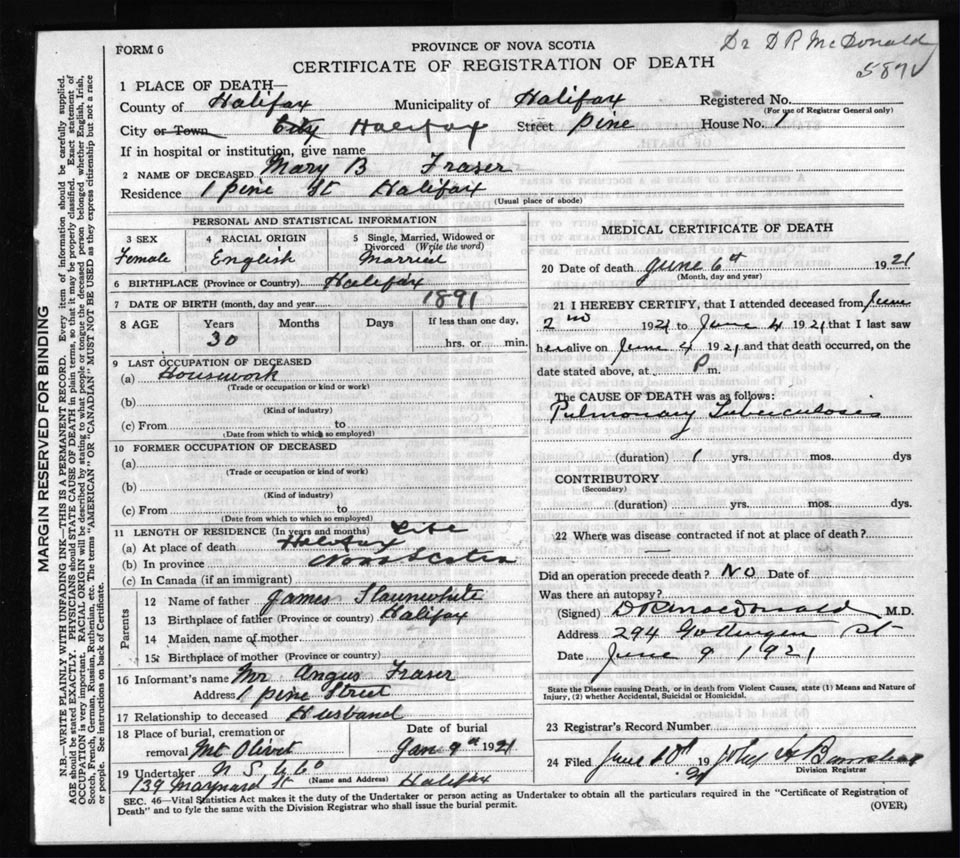 Dr D R McDonald
587
FORM 6
PROVINCE OF NOVA SCOTIA
CERTIFICATE OF REGISTRATION OF DEATH
1 PLACE OF DEATH—
County of Halifax Municipality of Halifax Registered No.
(For use of Registrar General only)
City or Town City Halifax Street Pine House No. 1
If in hospital or institution, give name
2 NAME OF DECEASED Mary B Fraser
Residence 1 Pine St Halifax
(Usual place of abode)
PERSONAL AND STATISTICAL INFORMATION
3 SEX
Female
4 RACIAL ORIGIN
English
5 Single, Married, Widowed or
Divorced (Write the word)
Married
6 BIRTHPLACE (Province or Country) Halifax
7 DATE OF BIRTH (month, day and year) 1891
8 AGE Years Months Days If less than one day,
30 hrs. or min.
9 LAST OCCUPATION OF DECEASED
(a) Housework
(Trade or occupation or kind or work)
(b)
(Kind of industry)
(c) From to
(Date from which to which so employed)
10 FORMER OCCUPATION OF DECEASED
(a)
(Trade or occupation or kind of work)
(b)
(Kind of industry)
(c) From to
(Date from which to which so employed)
11 LENGTH OF RESIDENCE (In years and months) Life
(a) At place of death Halifax
(b) In province Nova Scotia
(c) In Canada (if an immigrant)
Parents
12 Name of father James Slaunwhite
13 Birthplace of father (Province or country) Halifax
14 Maiden, name of mother
15 Birthplace of mother (Province or country)
16 Informant's name Mr Angus Fraser
Address 1 Pine Street
17 Relationship to deceased Husband
18 Place of burial, cremation or Date of burial
removal Mt Olivet Jan 9th 1921
19 Undertaker N S U Co
(Name and Address)
139 Maynard St Halifax
MEDICAL CERTIFICATE OF DEATH
20 Date of death June 6th 1921
(Month, day and year)
21 I HEREBY CERTIFY, that I attended deceased from June
2nd 1921 to June 4 1921 that I last saw
her alive on June 4 1921 and that death occurred, on the
date stated above, at P m.
The CAUSE OF DEATH was as follows:
Pulmonary Tuberculosis
(duration) 1 yrs. mos. dys
CONTRIBUTORY
(Secondary)
(duration) yrs. mos. dys.
22 Where was disease contracted if not at place of death?
—
Did an operation precede death? No Date of
Was there an autopsy?
(Signed) D R MacDonald M.D.
Address 294 Gottingen St
Date June 9 1921
State the Disease causing Death, or in death from Violent Causes, state (1) Means and Nature of
Injury, (2) whether Accidental, Suicidal or Homicidal.
23 Registrar's Record Number
24 Filed June 19
Division Registrar
SEC. 46—Vital Statistics Act makes it the duty of the Undertaker or person acting as Undertaker to obtain all the particulars required in the "Certificate of Registration of
Death" and to fyle the same with the Division Registrar who shall issue the burial permit. (OVER)
MARGIN RESERVED FOR BINDING
N.B.—WRITE PLAINLY WITH UNFADING INK—THIS IS A PERMANENT RECORD. Every item of information should be carefully supplied.
AGE should be stated EXACTLY. PHYSICIANS should STATE CAUSE OF DEATH in plain terms, so that it may be properly classified. Exact statement of
OCCUPATION is very important. RACIAL ORIGIN will be described by stating to what people or tongue the deceased person belonged whether English, Irish,
Scotch, French, German, Russian, Ruthenian, etc. The terms "AMERICAN" OR "CANADIAN" MUST NOT BE USED as they express citizenship but not a race
or people. See instructions on back of Certificate.